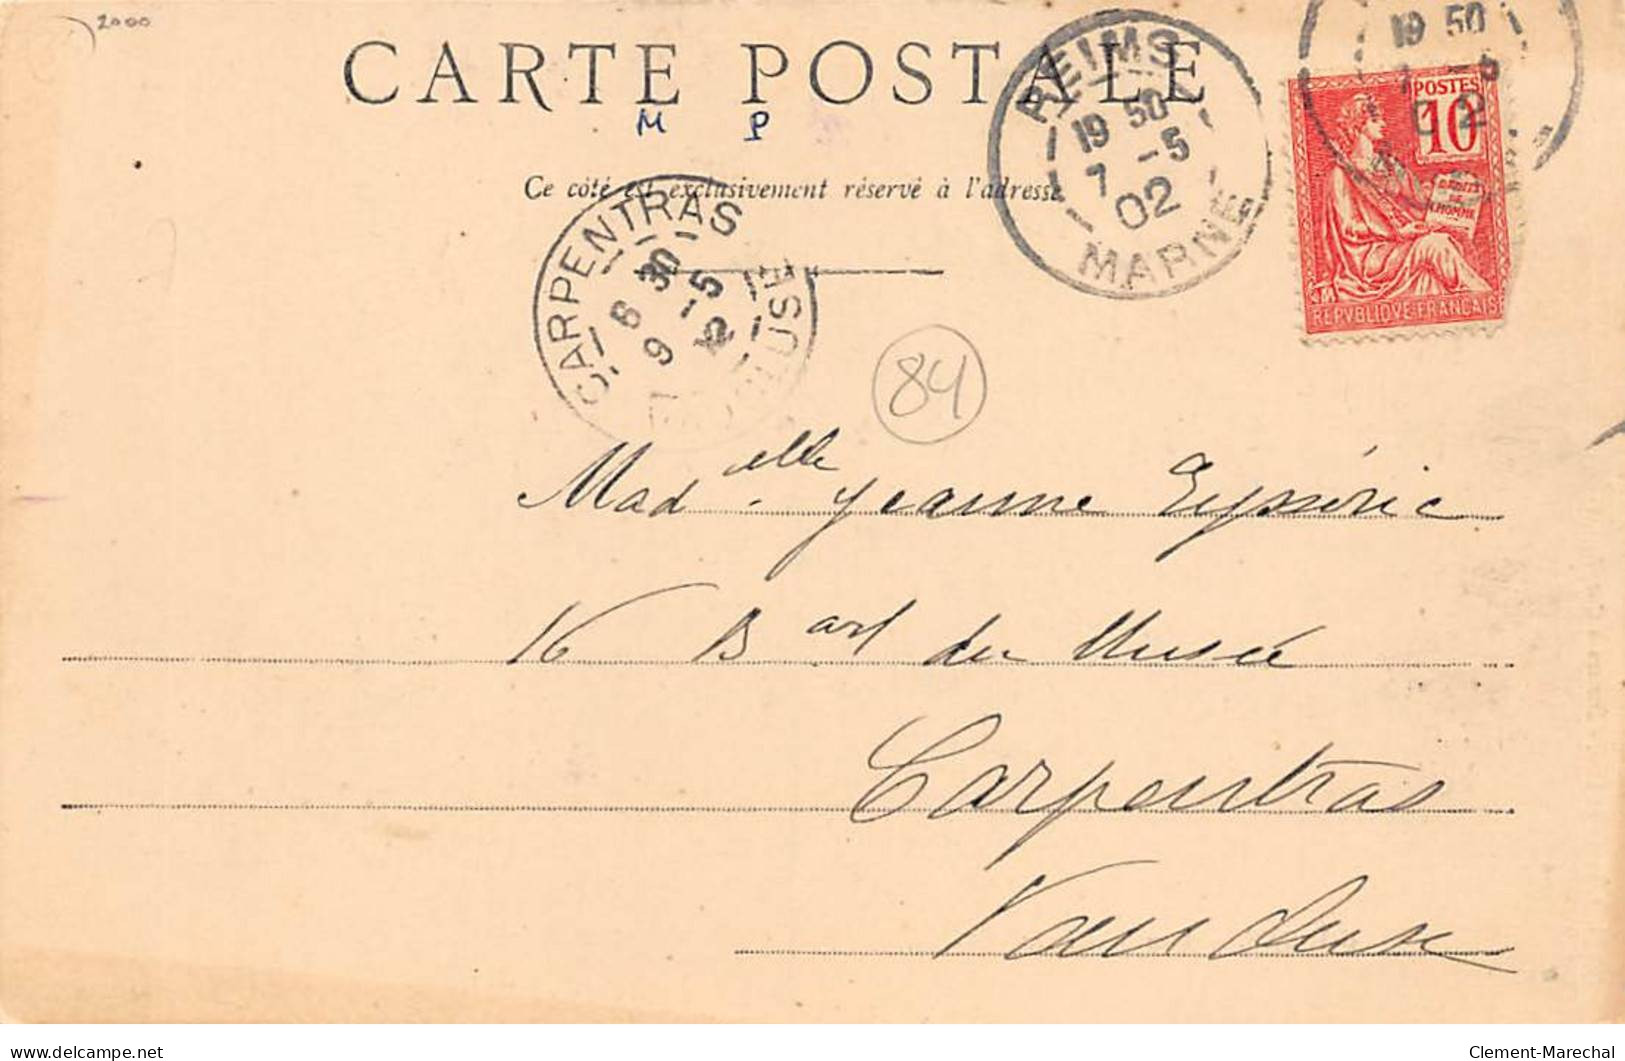 2000
CARTE POSTALE
M P
Ce côté est exclusivement réservé à l'adresse
REIMS
19 50
7 -5
02
MARNE
19 50
7 -5
02
POSTES
10
DROITS DE L'HOMME
REPVBLIQVE FRANÇAISE
CARPENTRAS
6 30
9 -5
02
VAUCLUSE
84
Madelle Jeanne Eysséric
16 Bard du Musée
Carpentras
Vaucluse
Clement-Marechal
delcampe.net